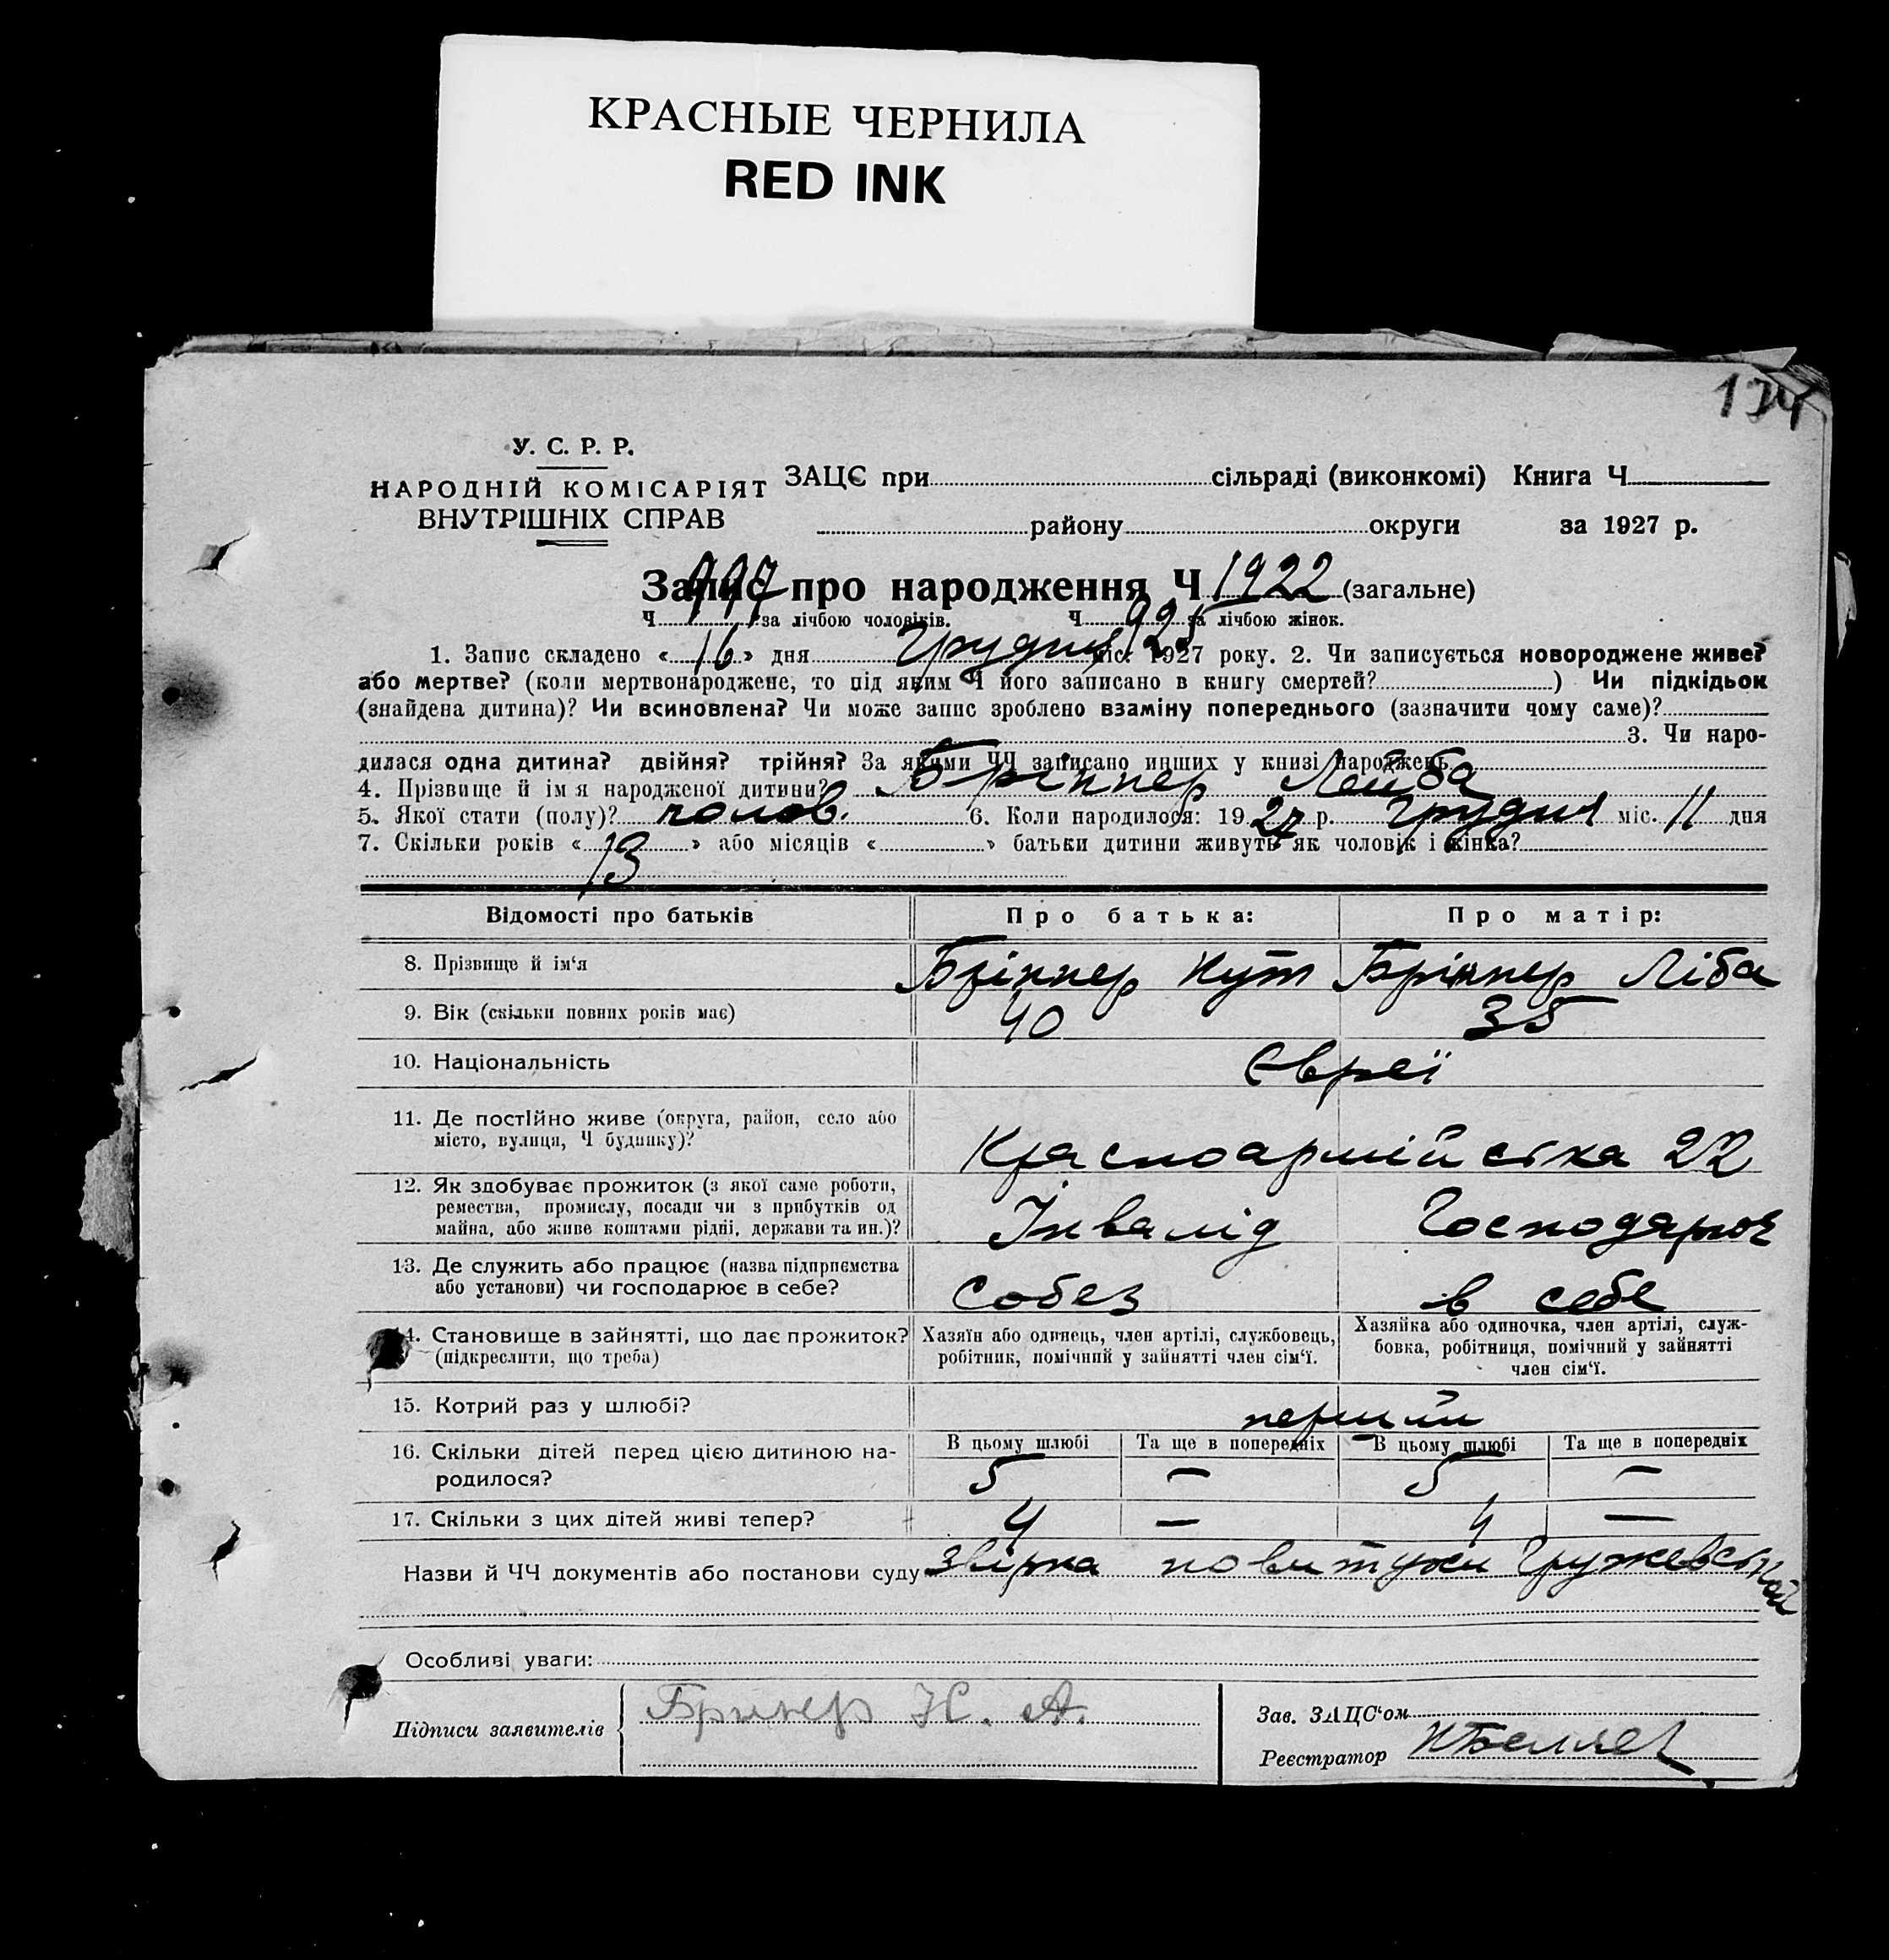 КРАСНЫЕ ЧЕРНИЛА
RED INK
У. С. Р. Р.
НАРОДНІЙ КОМІСАРІЯТ
ВНУТРІШНІХ СПРАВ
ЗАЦС при сільраді (виконкомі) Книга Ч
району округи за 1927 р.
Запис про народження Ч 1922 (загальне)
Ч 997 за лічбою чоловіків. Ч 925 за лічбою жінок.
1. Запис складено «16» дня Грудня міс. 1927 року. 2. Чи записується новороджене живе?
або мертве? (коли мертвонароджене, то під яким Ч його записано в книгу смертей? ) Чи підкідьок
(знайдена дитина)? Чи всиновлена? Чи може запис зроблено взаміну попереднього (зазначити чому саме)?
3. Чи наро-
дилася одна дитина? двійня? трійня? За якими ЧЧ записано инших у книзі народжень
4. Прізвище й ім'я народженої дитини? Бріннер Лейба
5. Якої стати (полу)? чолов. 6. Коли народилося: 1927 р. Грудня міс. 11 дня
7. Скільки років «13» або місяців « » батьки дитини живуть як чоловік і жінка?
Відомості про батьків Про батька: Про матір:
8. Прізвище й ім'я Бріннер Нут Бріннер Ліба
9. Вік (скільки повних років має) 40 35
10. Національність Євреї
11. Де постійно живе (округа, район, село або
місто, вулиця, Ч будинку)? Красноармійська 22
12. Як здобуває прожиток (з якої саме роботи,
ремества, промислу, посади чи з прибутків од
майна, або живе коштами рідні, держави та ин.)? Інвалід Господарює
13. Де служить або працює (назва підприємства
або установи) чи господарює в себе? Собез в себе
14. Становище в зайнятті, що дає прожиток?
(підкреслити, що треба)
Хазяїн або одинець, член артілі, службовець,
робітник, помічний у зайнятті член сім'ї.
Хазяйка або одиночка, член артілі, служ-
бовка, робітниця, помічний у зайнятті
член сім'ї.
15. Котрий раз у шлюбі? перший
16. Скільки дітей перед цією дитиною на-
родилося?
В цьому шлюбі Та ще в попередніх В цьому шлюбі Та ще в попередніх
5 — 5 —
17. Скільки з цих дітей живі тепер? 4 — 4 —
Назви й ЧЧ документів або постанови суду повитухи Гружевської
Особливі уваги:
Підписи заявителів Бринер Н. А.
Зав. ЗАЦС'ом
Реєстратор